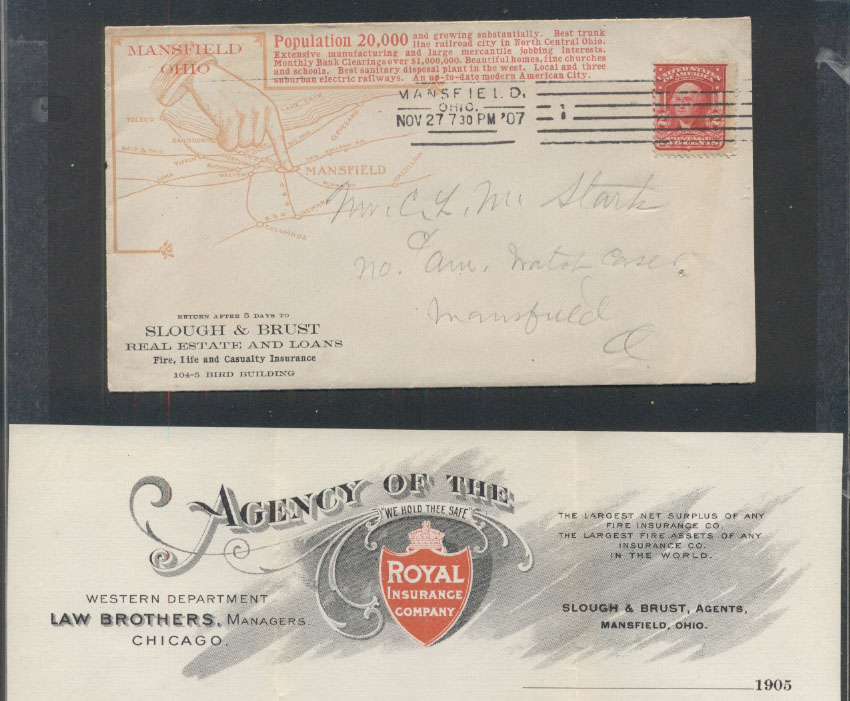 MANSFIELD
OHIO
Population 20,000 and growing substantially. Best trunk
line railroad city in North Central Ohio.
Extensive manufacturing and large mercantile jobbing interests.
Monthly Bank Clearings over $1,000,000. Beautiful homes, fine churches
and schools. Best sanitary disposal plant in the west. Local and three
suburban electric railways. An up-to-date modern American City.
MANSFIELD.
OHIO.
NOV 27 7 30 PM '07
1
UNITED STATES
OF AMERICA
TOLEDO
SANDUSKY
CLEVELAND
TIFFIN
LIMA
MANSFIELD
MASSILLON
NEWARK
COLUMBUS
Mr. C. L. Mc Stark
No. Am. Watch Case
Mansfield
O
RETURN AFTER 5 DAYS TO
SLOUGH & BRUST
REAL ESTATE AND LOANS
Fire, Life and Casualty Insurance
104-5 BIRD BUILDING
AGENCY OF THE
"WE HOLD THEE SAFE"
ROYAL
INSURANCE
COMPANY
WESTERN DEPARTMENT
LAW BROTHERS, MANAGERS.
CHICAGO.
THE LARGEST NET SURPLUS OF ANY
FIRE INSURANCE CO.
THE LARGEST FIRE ASSETS OF ANY
INSURANCE CO.
IN THE WORLD.
SLOUGH & BRUST, AGENTS,
MANSFIELD, OHIO.
1905